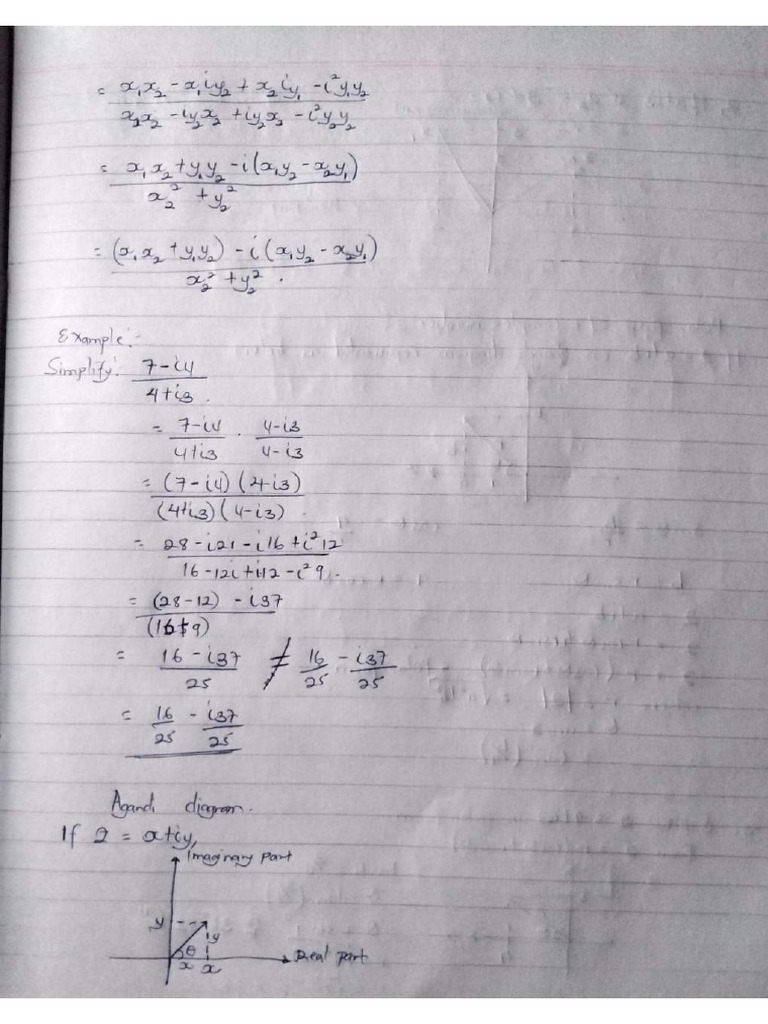 = x₁x₂ - x₁iy₂ + x₂iy₁ - i²y₁y₂
x₂x₂ - iy₂x₂ + iy₂x₂ - i²y₂y₂
= x₁x₂ + y₁y₂ - i(x₁y₂ - x₂y₁)
x₂² + y₂²
= (x₁x₂ + y₁y₂) - i(x₁y₂ - x₂y₁)
x₂² + y₂² .
Example:-
Simplify: 7-i4
4+i3 .
= 7-i4 . 4-i3
4+i3 4-i3
= (7-i4)(4-i3)
(4+i3)(4-i3) .
= 28-i21-i16+i²12
16-12i+i12-i²9.
= (28-12) - i37
(16+9)
= 16-i37 ≠ 16 - i37
25 25 25
= 16 - i37
25 25
Agand diagram.
If Z = x+iy,
Imaginary part
y
y
θ
x x
Real part